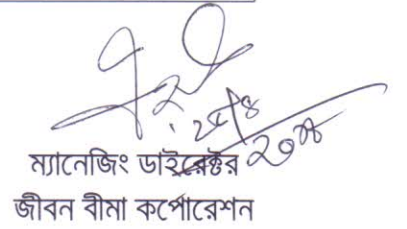 ম্যানেজিং ডাইরেক্টর
জীবন বীমা কর্পোরেশন